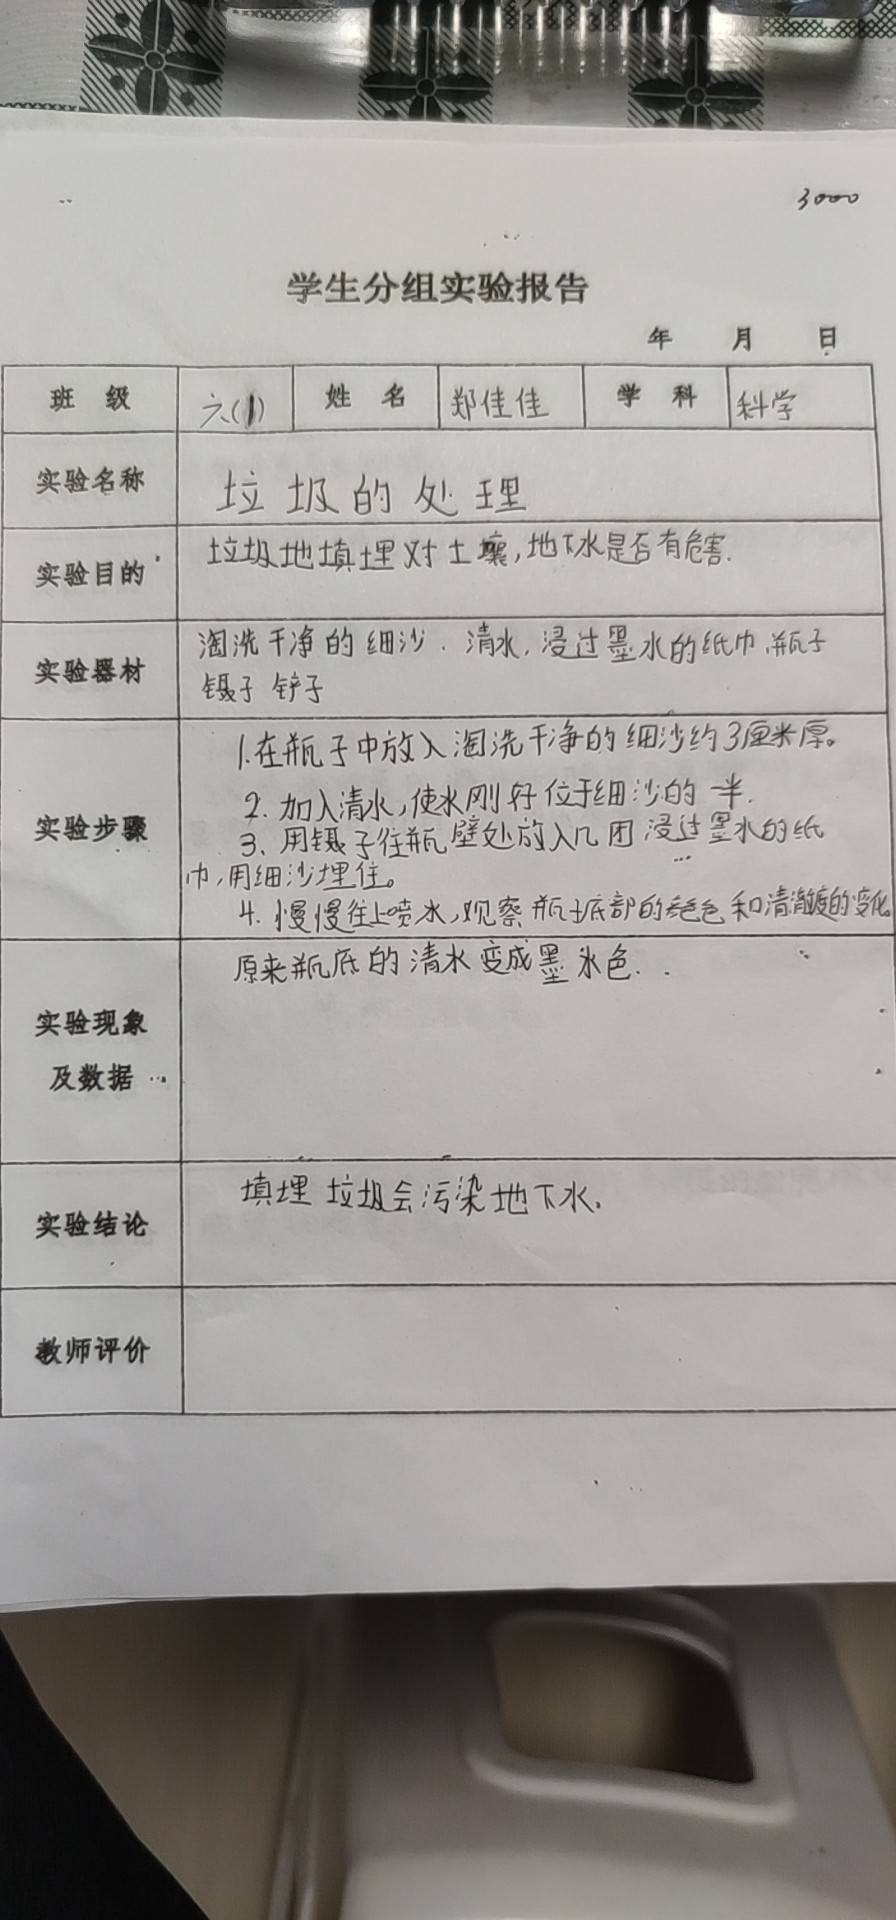 3000
学生分组实验报告
年 月 日
班 级 六(1) 姓 名 郑佳佳 学 科 科学
实验名称 垃圾的处理
实验目的 垃圾地填埋对土壤,地下水是否有危害.
实验器材 淘洗干净的细沙.清水,浸过墨水的纸巾.瓶子
镊子 铲子
实验步骤
1.在瓶子中放入淘洗干净的细沙约3厘米厚。
2.加入清水,使水刚好位于细沙的一半.
3、用镊子往瓶壁处放入几团浸过墨水的纸
巾,用细沙埋住。
4.慢慢往上喷水,观察瓶底部的颜色和清澈度的变化。
实验现象
及数据
原来瓶底的清水变成墨水色.
实验结论 填埋垃圾会污染地下水.
教师评价